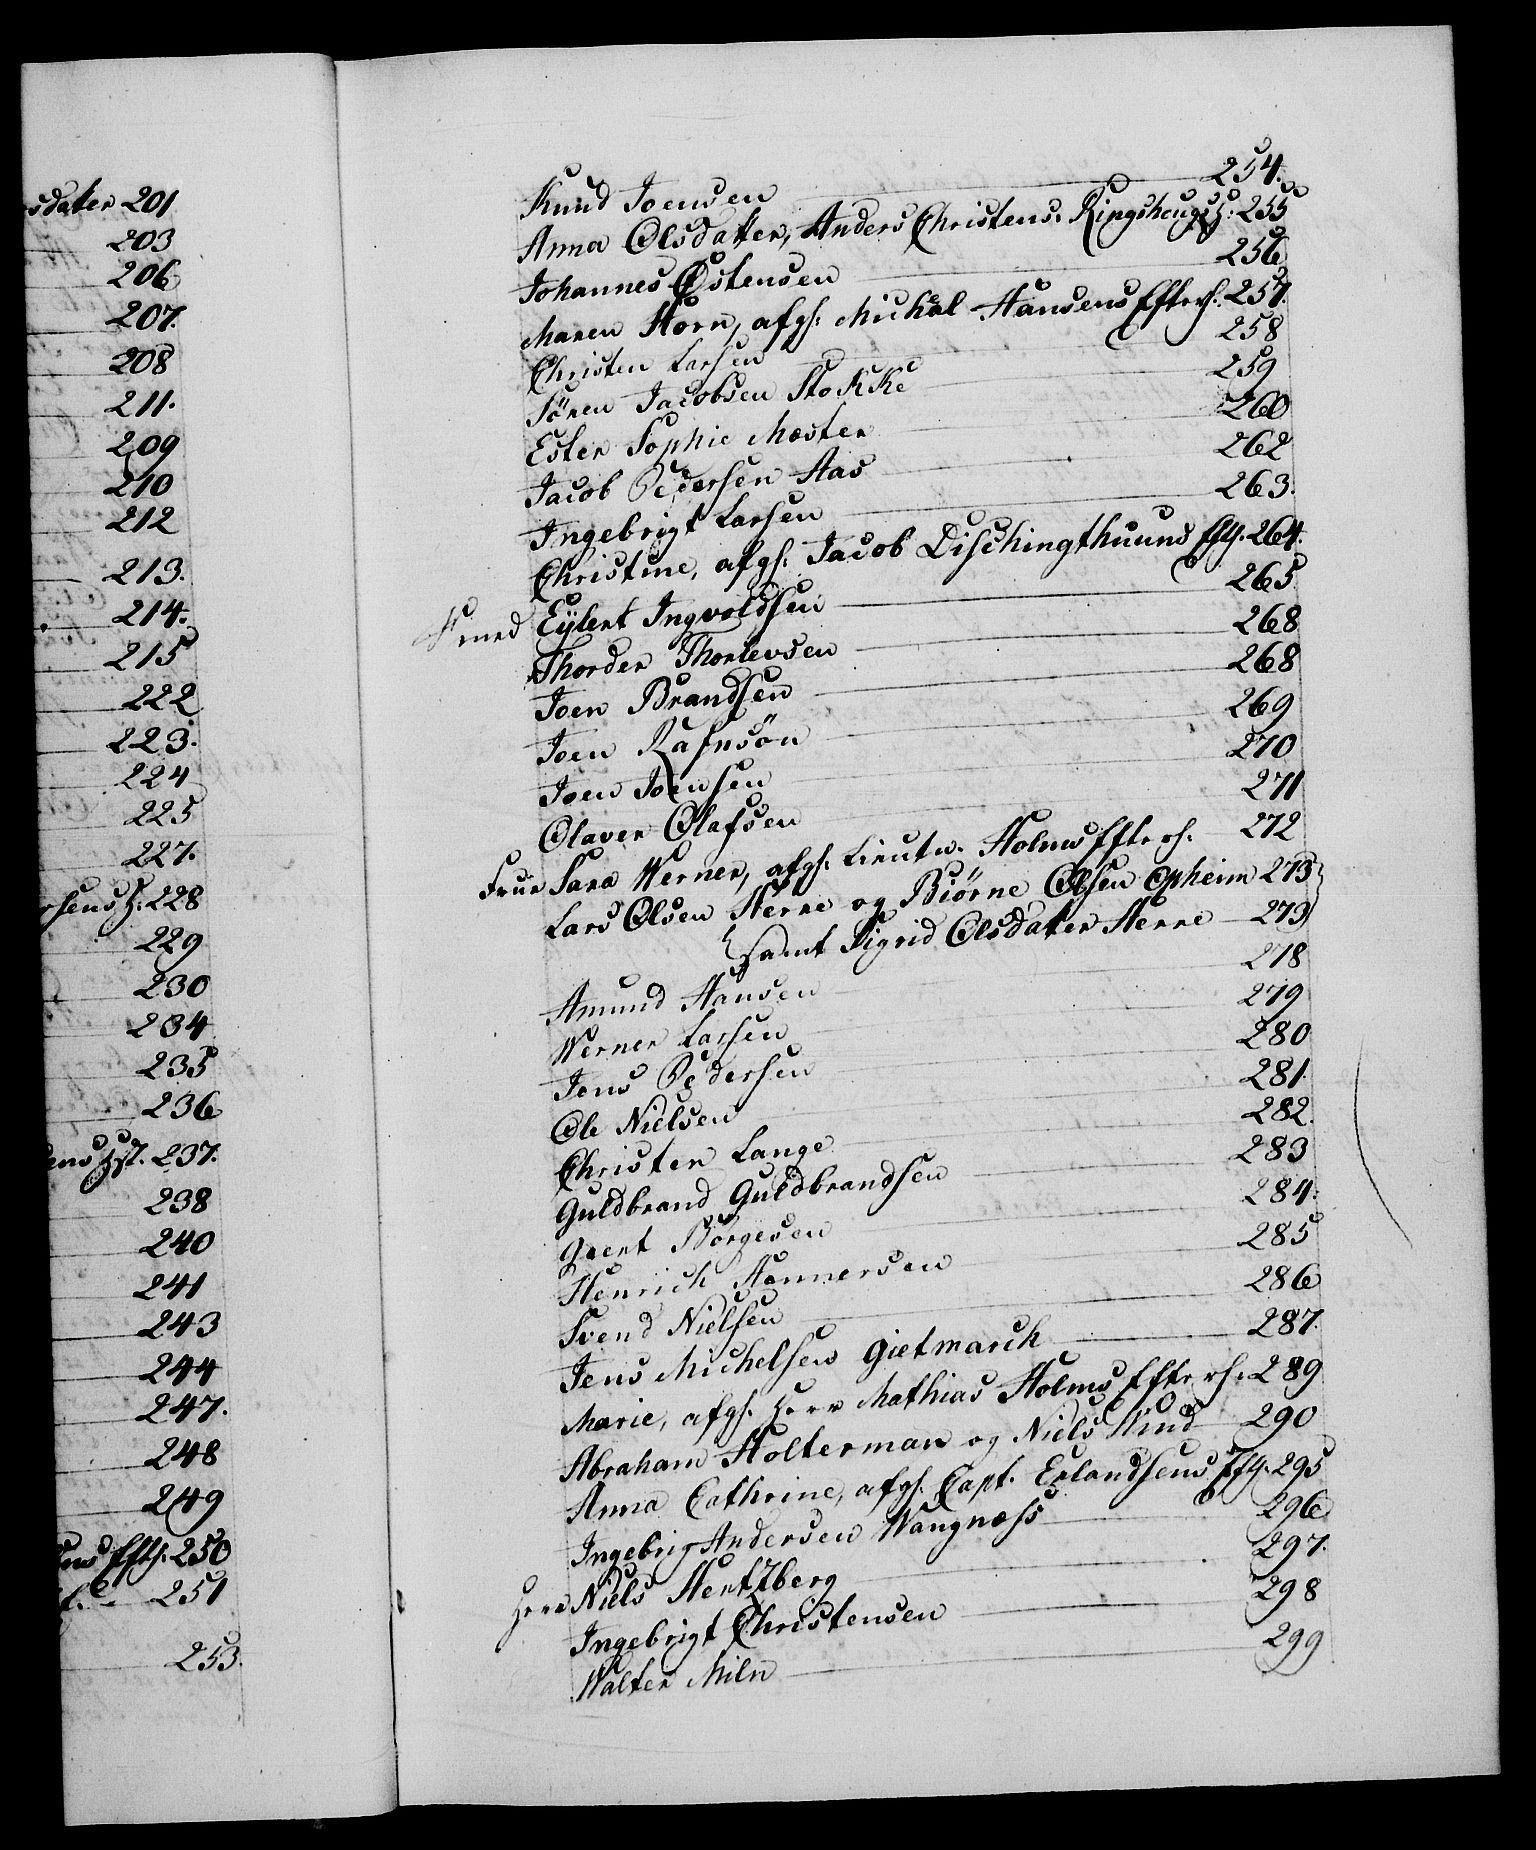 sdater 201
203
206
207.
208
211.
209
210
212
213.
214.
215
222
223.
224
225
227.
rsens H: 228
229
230
234
235
236
237.
238
240
241
243
244
247.
248
249
Efth: 250
251
253.
Knud Joensen 254.
Anna Olsdatter, Anders Christens: Ringshougs H: 255
Johannes Østensen 256
Maren Horn, afgh: Michal Hansens Efterh. 257.
Christen Larsen 258
Sören Jacobsen Stokke 259
Ester Sophie Mæster 260
Jacob Pedersen Aas 262
Ingebrigt Larsen 263.
Christine, afgh: Jacob Dischingthuuns Efth. 264.
Eylert Ingvoldsen 265
Thorder Thorlevsen 268
Joen Brandsen 268
Joen Rafnsön 269
Joen Joensen 270
Olaver Olafsen 271
Frue Sara Werner, afgh: Lieutn. Holms Efterh. 272
Lars Olsen Herre og Biörne Olsen Opheim 273
samt Sigrid Olsdatter Herre 273
Amund Hansen 278
Werner Larsen 279
Jens Pedersen 280
Ole Nielsen 281.
Christen Lange 282.
Guldbrand Guldbrandsen 283
Geert Börgesen 284.
Henrich Hemmersen 285
Svend Nielsen 286
Jens Michelsen Gietmarch 287.
Marie, afgh. Herr Mathias Holms Efterh. 289
Abraham Holterman og Niels Kruud 290
Anna Cathrine, afgh. Capt. Erlandsens Efth. 295
Ingebrigt Andersen Wangnæss 296
Herr Niels Hertzberg 297.
Ingebrigt Christensen 298
Walter Miln 299